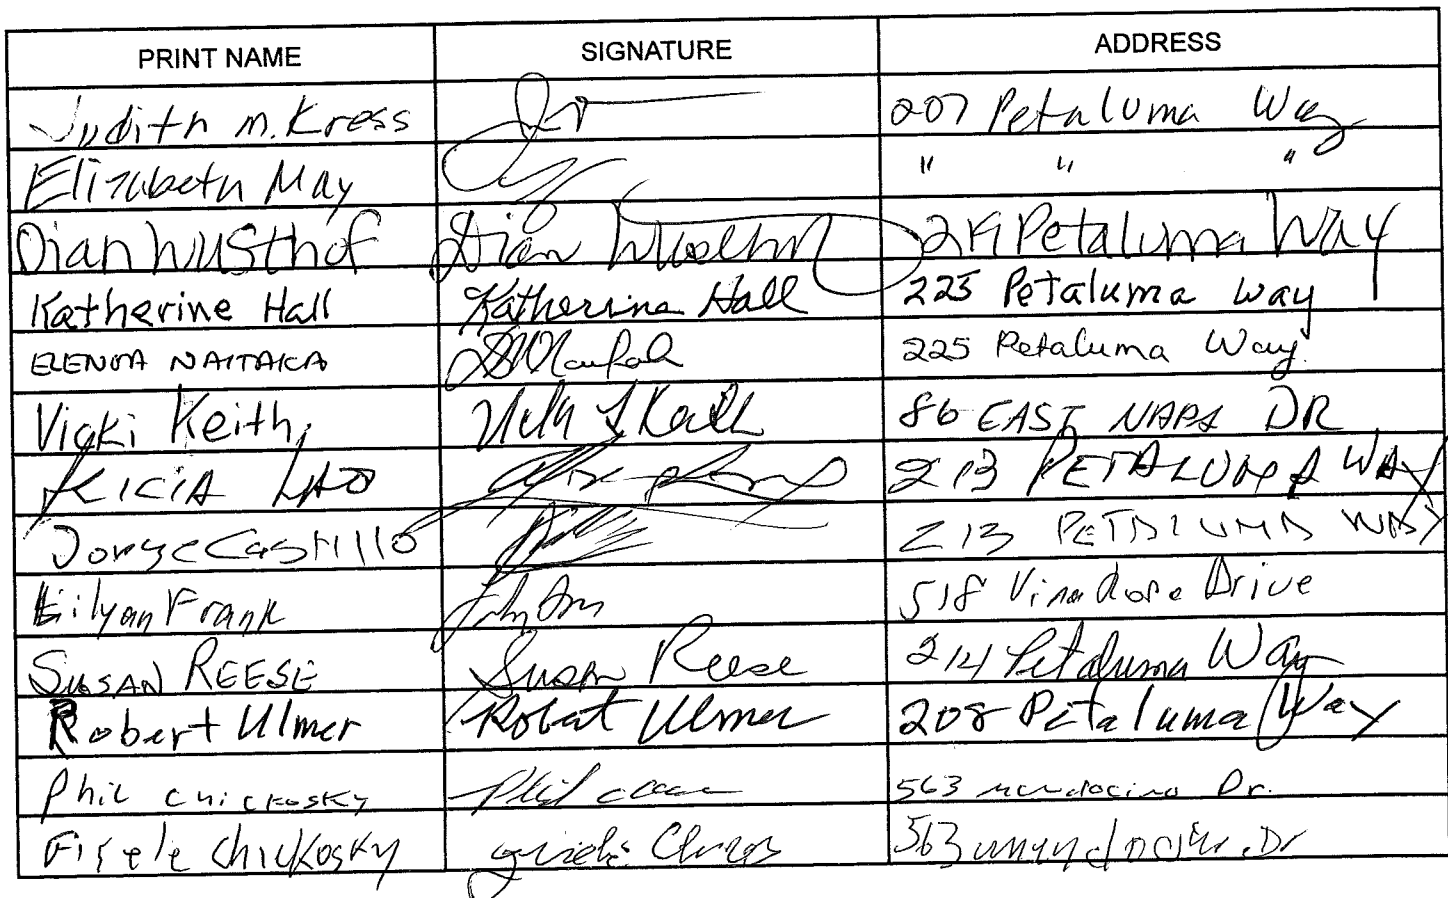 PRINT NAME SIGNATURE ADDRESS
Judith M. Kress 207 Petaluma Way
Elizabeth May " " "
Dian Wusthof Dian 219 Petaluma Way
Katherine Hall Katherine Hall 225 Petaluma Way
NAITAKA 225 Petaluma Way.
Vicki Keith 86 EAST NAPA DR
LAO 213 PETALUMA WAY
Jorge Castillo 213 PETALUMA WAY
Frank 518 Drive
SUSAN REESE Susan Reese 214 Petaluma Way
Robert Ulmer Robert Ulmer 208 Petaluma Way
Phil Chickosky Phil 563 Mendocino Dr.
Chickosky 563 Dr